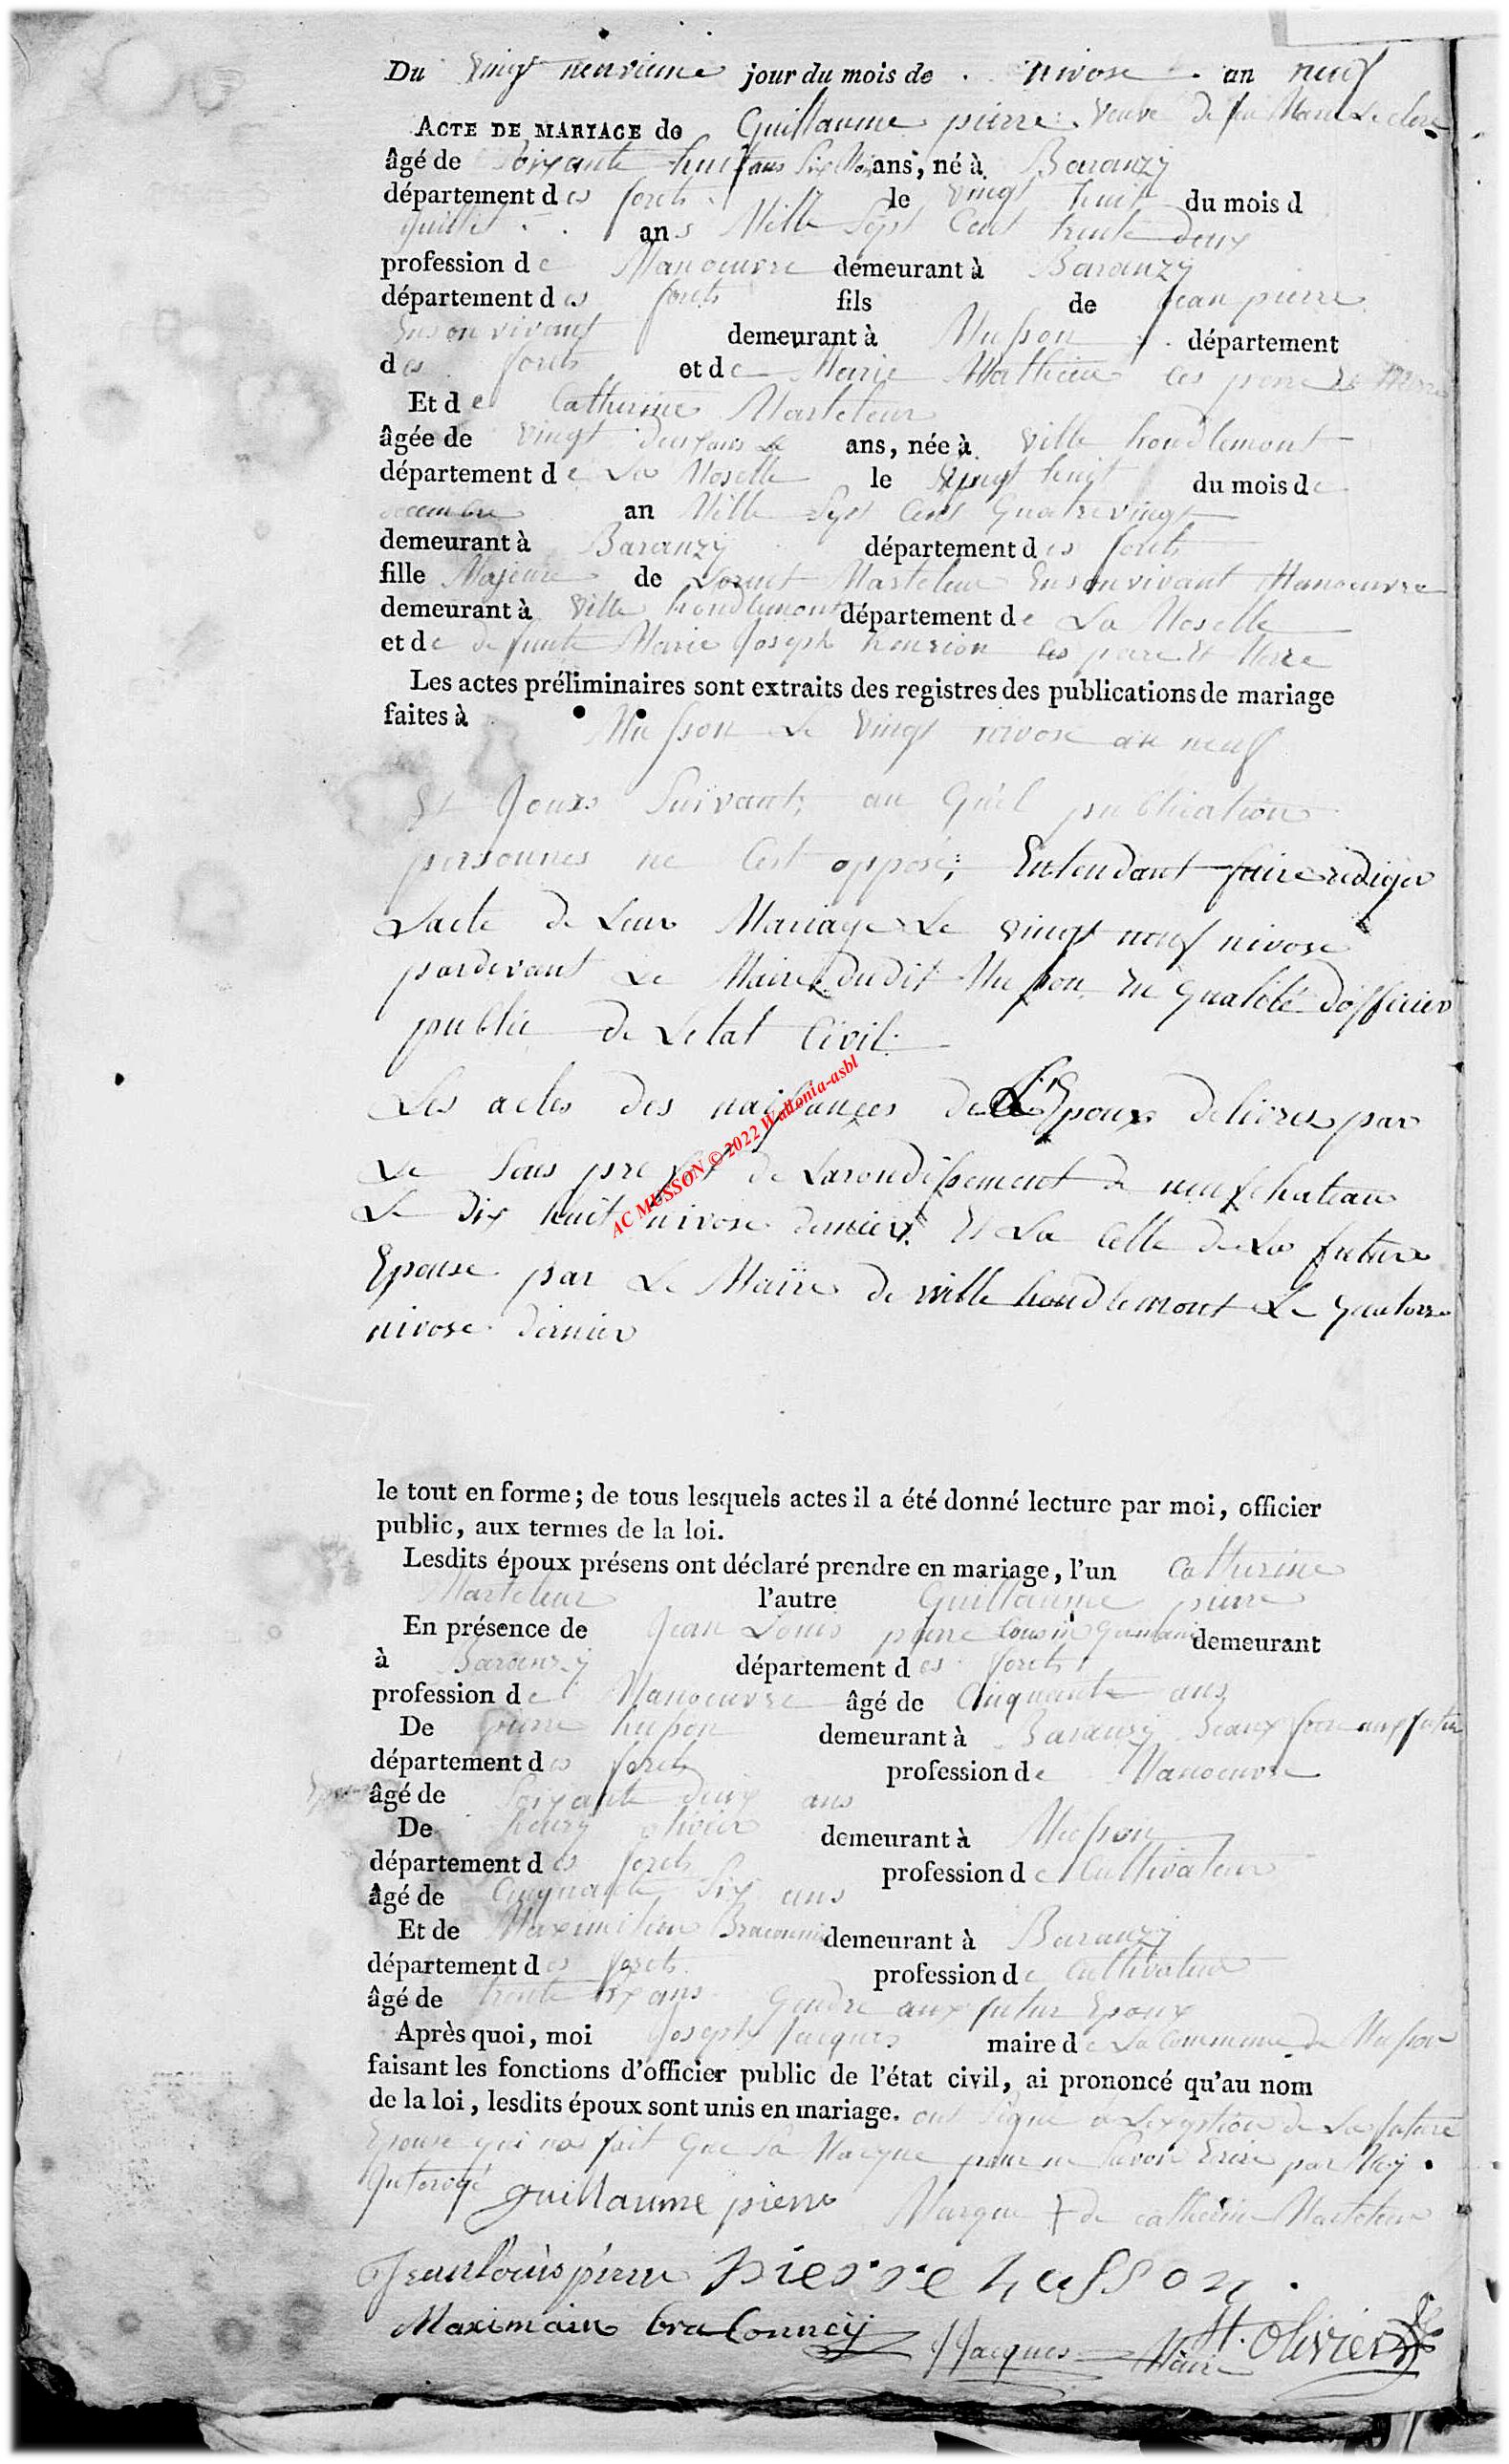 Du vingt neuvieme jour du mois de nivose an neuf
ACTE DE MARIAGE de Guillaume pierre veuve de feu Marie Leclere
âgé de Soixante huit ans Six Mois ans, né à Baranzÿ
département des forets le vingt huit du mois d
juillet ans Mille Sept Cent trente Deux
profession de Manoeuvre demeurant à Baranzÿ
département des forets fils de jean pierre
En son vivant demeurant à Musson département
des forets et de Marie Mathieu Ces pere et Mere
Et de Catherine Marteleur
âgée de vingt deux ans, née à ville houdlemont
département de La Moselle le vingt huit du mois de
decembre an Mille Sept Cent Quatre vingt
demeurant à Baranzÿ département des forets
fille Majeure de Marteleur En son vivant Manoeuvre
demeurant à ville houdlemont département de La Moselle
et de defunte Marie Joseph henrion Ces pere Et Mere
Les actes préliminaires sont extraits des registres des publications de mariage
faites à Musson Le vingt nivose an neuf
Et Jours Suivants au Quel publication
personnes ne Cest opposé; Entendant faire rediger
Lacte de Leur Mariage Le vingt neuf nivose
pardevant Le Maire dudit Musson En qualité dofficier
public de Letat Civil.
Les actes des naissances de L'Epoux delivrez par
Le Sous prefet de Larondissement de neufchateau
Le dix huit nivose dernier. Et La Celle de La future
Epouse par Le Maire de ville houdlemont Le quatorze
nivose dernier
AC MUSSON © 2022 Wallonia-asbl
le tout en forme; de tous lesquels actes il a été donné lecture par moi, officier
public, aux termes de la loi.
Lesdits époux présens ont déclaré prendre en mariage, l'un Catherine
Marteleur l'autre Guillaume pierre
En présence de Jean Louis pierre Cousin Germain demeurant
à Baranzÿ département des forets
profession de Manoeuvre âgé de Cinquante ans
De pierre husson demeurant à Baranzÿ Beaux frere aux futur
département des forets profession de Manoeuvre
Epoux âgé de Soixante deux ans
De henry olivier demeurant à Musson
département des forets profession de Cultivateur
âgé de Cinquante Six ans
Et de Maximilien Braconnier demeurant à Baranzÿ
département des forets profession de Cultivateur
âgé de trente Six ans Gendre aux futur Epoux
Après quoi, moi Joseph Jacques maire de La Commune de Musson
faisant les fonctions d'officier public de l'état civil, ai prononcé qu'au nom
de la loi, lesdits époux sont unis en mariage. ont Signé à Lexeption de La future
Epouse qui na fait que Sa Marque pour ne Savoir Ecrire par Moÿ
Interogé guillaume pierre Marque de catherine Marteleur
Jean louis pierre pierre husson
Maximain braconneÿ JJacques Maire H. Olivier